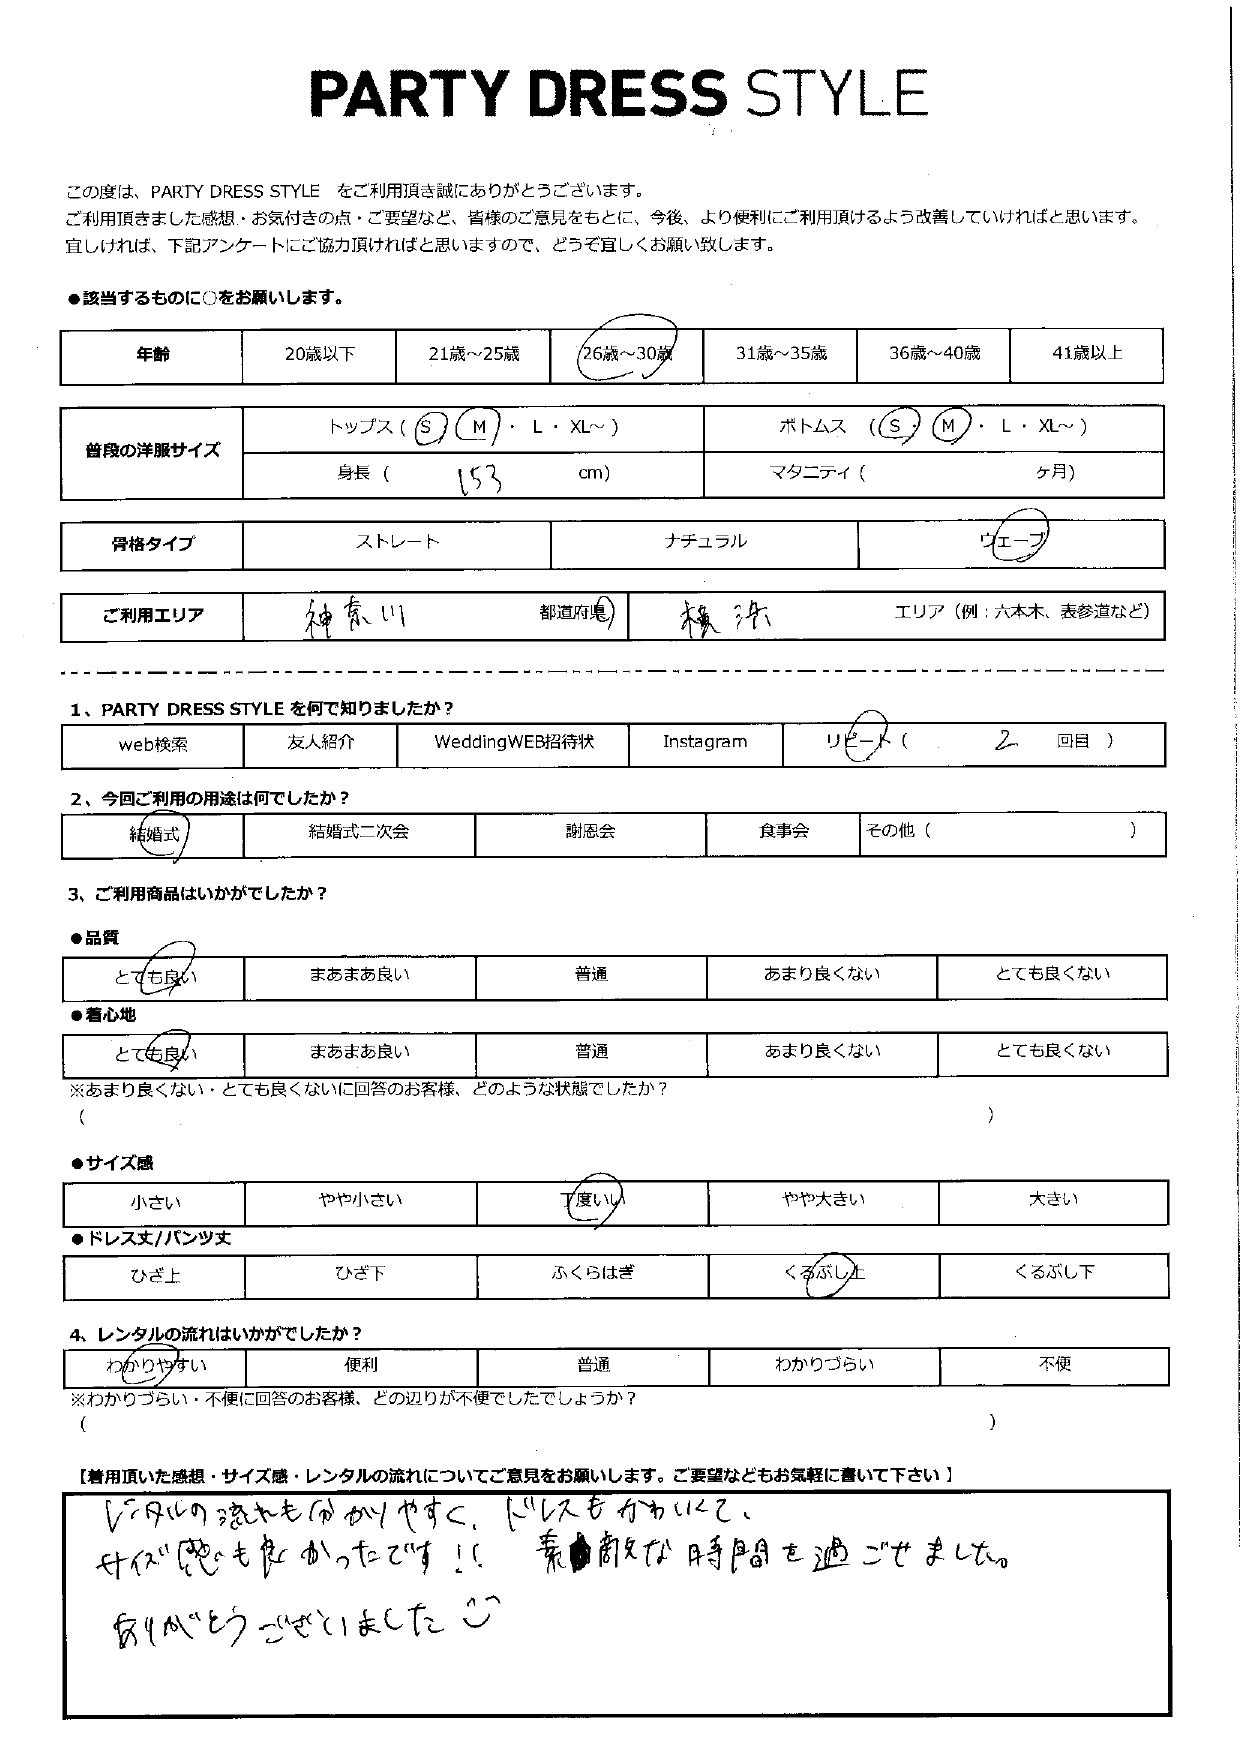 PARTY DRESS STYLE
この度は、PARTY DRESS STYLE をご利用頂き誠にありがとうございます。
ご利用頂きました感想・お気付きの点・ご要望など、皆様のご意見をもとに、今後、より便利にご利用頂けるよう改善していければと思います。
宜しければ、下記アンケートにご協力頂ければと思いますので、どうぞ宜しくお願い致します。
●該当するものに○をお願いします。
年齢 20歳以下 21歳～25歳 26歳～30歳 31歳～35歳 36歳～40歳 41歳以上
普段の洋服サイズ トップス ( S ・ M ・ L ・ XL～ ) ボトムス ( S ・ M ・ L ・ XL～ )
身長 ( 153 cm) マタニティ ( ヶ月)
骨格タイプ ストレート ナチュラル ウェーブ
ご利用エリア 神奈川 都道府県 横浜 エリア（例：六本木、表参道など）
1、PARTY DRESS STYLE を何で知りましたか？
web検索 友人紹介 WeddingWEB招待状 Instagram リピート ( 2 回目 )
2、今回ご利用の用途は何でしたか？
結婚式 結婚式二次会 謝恩会 食事会 その他 ( )
3、ご利用商品はいかがでしたか？
●品質
とても良い まあまあ良い 普通 あまり良くない とても良くない
●着心地
とても良い まあまあ良い 普通 あまり良くない とても良くない
※あまり良くない・とても良くないに回答のお客様、どのような状態でしたか？
( )
●サイズ感
小さい やや小さい 丁度いい やや大きい 大きい
●ドレス丈/パンツ丈
ひざ上 ひざ下 ふくらはぎ くるぶし上 くるぶし下
4、レンタルの流れはいかがでしたか？
わかりやすい 便利 普通 わかりづらい 不便
※わかりづらい・不便に回答のお客様、どの辺りが不便でしたでしょうか？
( )
【着用頂いた感想・サイズ感・レンタルの流れについてご意見をお願いします。ご要望などもお気軽に書いて下さい】
レンタルの流れも分かりやすく、ドレスもかわいくて、
サイズ感も良かったです!! 素敵な時間を過ごせました。
ありがとうございました